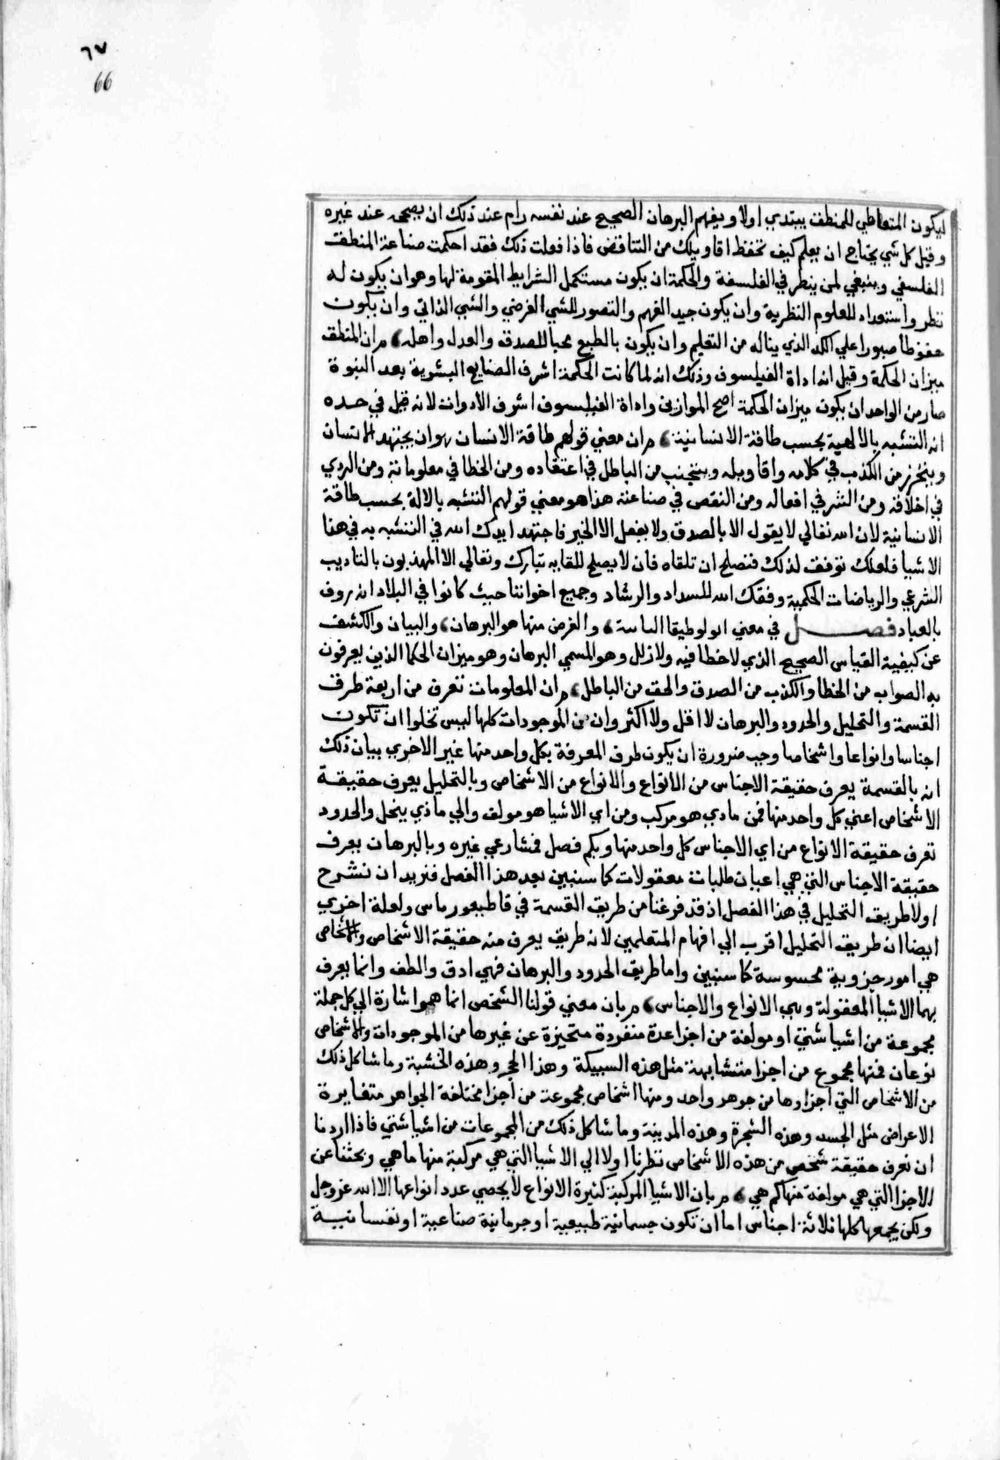 ٦٧
66
ليكون المتعاطي للمنطق يبتدي اولا ويفهم البرهان الصحيح عند نفسه رام عند ذلك ان يصححه عند غيره
وقبل كل شي يحتاج ان يعلم كيف تحفظ اقاويلك من التناقض فاذا فعلت ذلك فقد احكمت صناعة المنطق
الفلسفي وينبغي لمن ينظر في الفلسفة والحكمة ان يكون مستكمل الشرايط المقومة لها وهو ان يكون له
نظر واستعداد للعلوم النظرية وان يكون جيد الفهم والتصور للشي العرضي والشي الذاتي وان يكون
حفوظا صبورا علي الكد الذي يناله من التعليم وان يكون بالطبع محبا للصدق والعدل واهله ان المنطق
ميزان الحكمة وقيل انه اداة الفيلسوف وذلك انه لما كانت الحكمة اشرف الصنايع البشرية بعد النبوة
صار من الواجد ان يكون ميزان الحكمة اصح الموازين واداة الفيلسوف اشرف الادوات لانه قيل في حده
انه التشبه بالالهية بحسب طاقة الانسانية ان معني قولهم طاقة الانسان هو ان يجتهد الانسان
ويتحرز من الكذب في كلامه واقاويله ويتجنب من الباطل في اعتقاده ومن الخطا في معلوماته ومن الردي
في اخلاقه ومن الشر في افعاله ومن النقص في صناعته هذا هو معني قولهم التشبه بالاله بحسب طاقة
الانسانية لان الله تعالي لا يقول الا بالصدق ولا يفعل الا الخير فاجتهد ايدك الله في التشبه به في هذا
الاشيا فلعلك توفق لذلك فتصلح ان تلقاه فان لا يصلح للقايه تبارك وتعالي الا المهذبون بالتاديب
الشرعي والرياضات الحكمية وفقك الله للسداد والرشاد وجميع اخواننا حيث كانوا في البلاد انه روف
بالعباد فصل في معني انولوطيقا الثانية والغرض منها هو البرهان والبيان والكشف
عن كيفية القياس الصحيح الذي لا خطا فيه ولا زلل وهو المسمي البرهان وهو ميزان الحكما الذين يعرفون
به الصواب من الخطا والكذب من الصدق والحق من الباطل ان المعلومات تعرف من اربعة طرق
القسمة والتحليل والحدود والبرهان لا اقل ولا اكثر وان الموجودات كلها ليس تخلوا ان تكون
اجناسا وانواعا واشخاصا وجب ضرورة ان يكون طرق المعرفة بكل واحد منها غير الاخري بيان ذلك
انه بالقسمة يعرف حقيقة الاجناس من الانواع والانواع من الاشخاص وبالتحليل يعرف حقيقة
الاشخاص اعني كل واحد منها من ماذي هو مركب ومن اي الاشيا هو مولف والي ماذي ينحل والحدود
تعرف حقيقة الانواع من اي الاجناس كل واحد منها وبكم فصل عن غيره وبالبرهان يعرف
حقيقة الاجناس التي هي اعيان طلبات معقولات كما سنبين بعد هذا الفصل فنريد ان نشرح
اولا طريق التحليل في هذا الفصل اذ قد فرغنا من طريق القسمة في قاطيغورياس ولعلة اخري
ايضا ان طريق التحليل اقرب الي افهام المتعلمين لانه طريق يعرف منه حقيقة الاشخاص والاشخاص
هي امور جزوية محسوسة كما سنبين واما طريق الحدود والبرهان فهي ادق والطف وانما يعرف
بهما الاشيا المعقولة وهي الانواع والاجناس بان معني قولنا الشخص انما هو اشارة الي كل جملة
مجموعة من اشيا شتي او مولفة من اجزا عدة منفردة متحيزة عن غيرها من الموجودات والاشخاص
نوعان فمنها مجموع من اجزا متشابهة مثل هذه السبيكة وهذا الحجر وهذه الخشبة وما شاكل ذلك
من الاشخاص التي اجزاوها من جوهر واحد ومنها اشخاص مجموعة من اجزا مختلفة الجواهر متغايرة
الاعراض مثل الجسد وهذه الشجرة وهذه المدينة وما شاكل ذلك من المجموعات من اشيا شتي فاذا اردنا
ان نعرف حقيقة شخص من هذه الاشخاص نظرنا اولا الي الاشيا التي هي مركبة منها ماهي وبحثنا عن
الاجزا التي هي مولفة منها كم هي بان الاشيا المركبة كثيرة الانواع لا يحصي عدد انواعها الا الله عز وجل
ولكن يجمعها كلها ثلاثة اجناس اما ان تكون جسمانية طبيعية او جرمانية صناعية او نفسانية